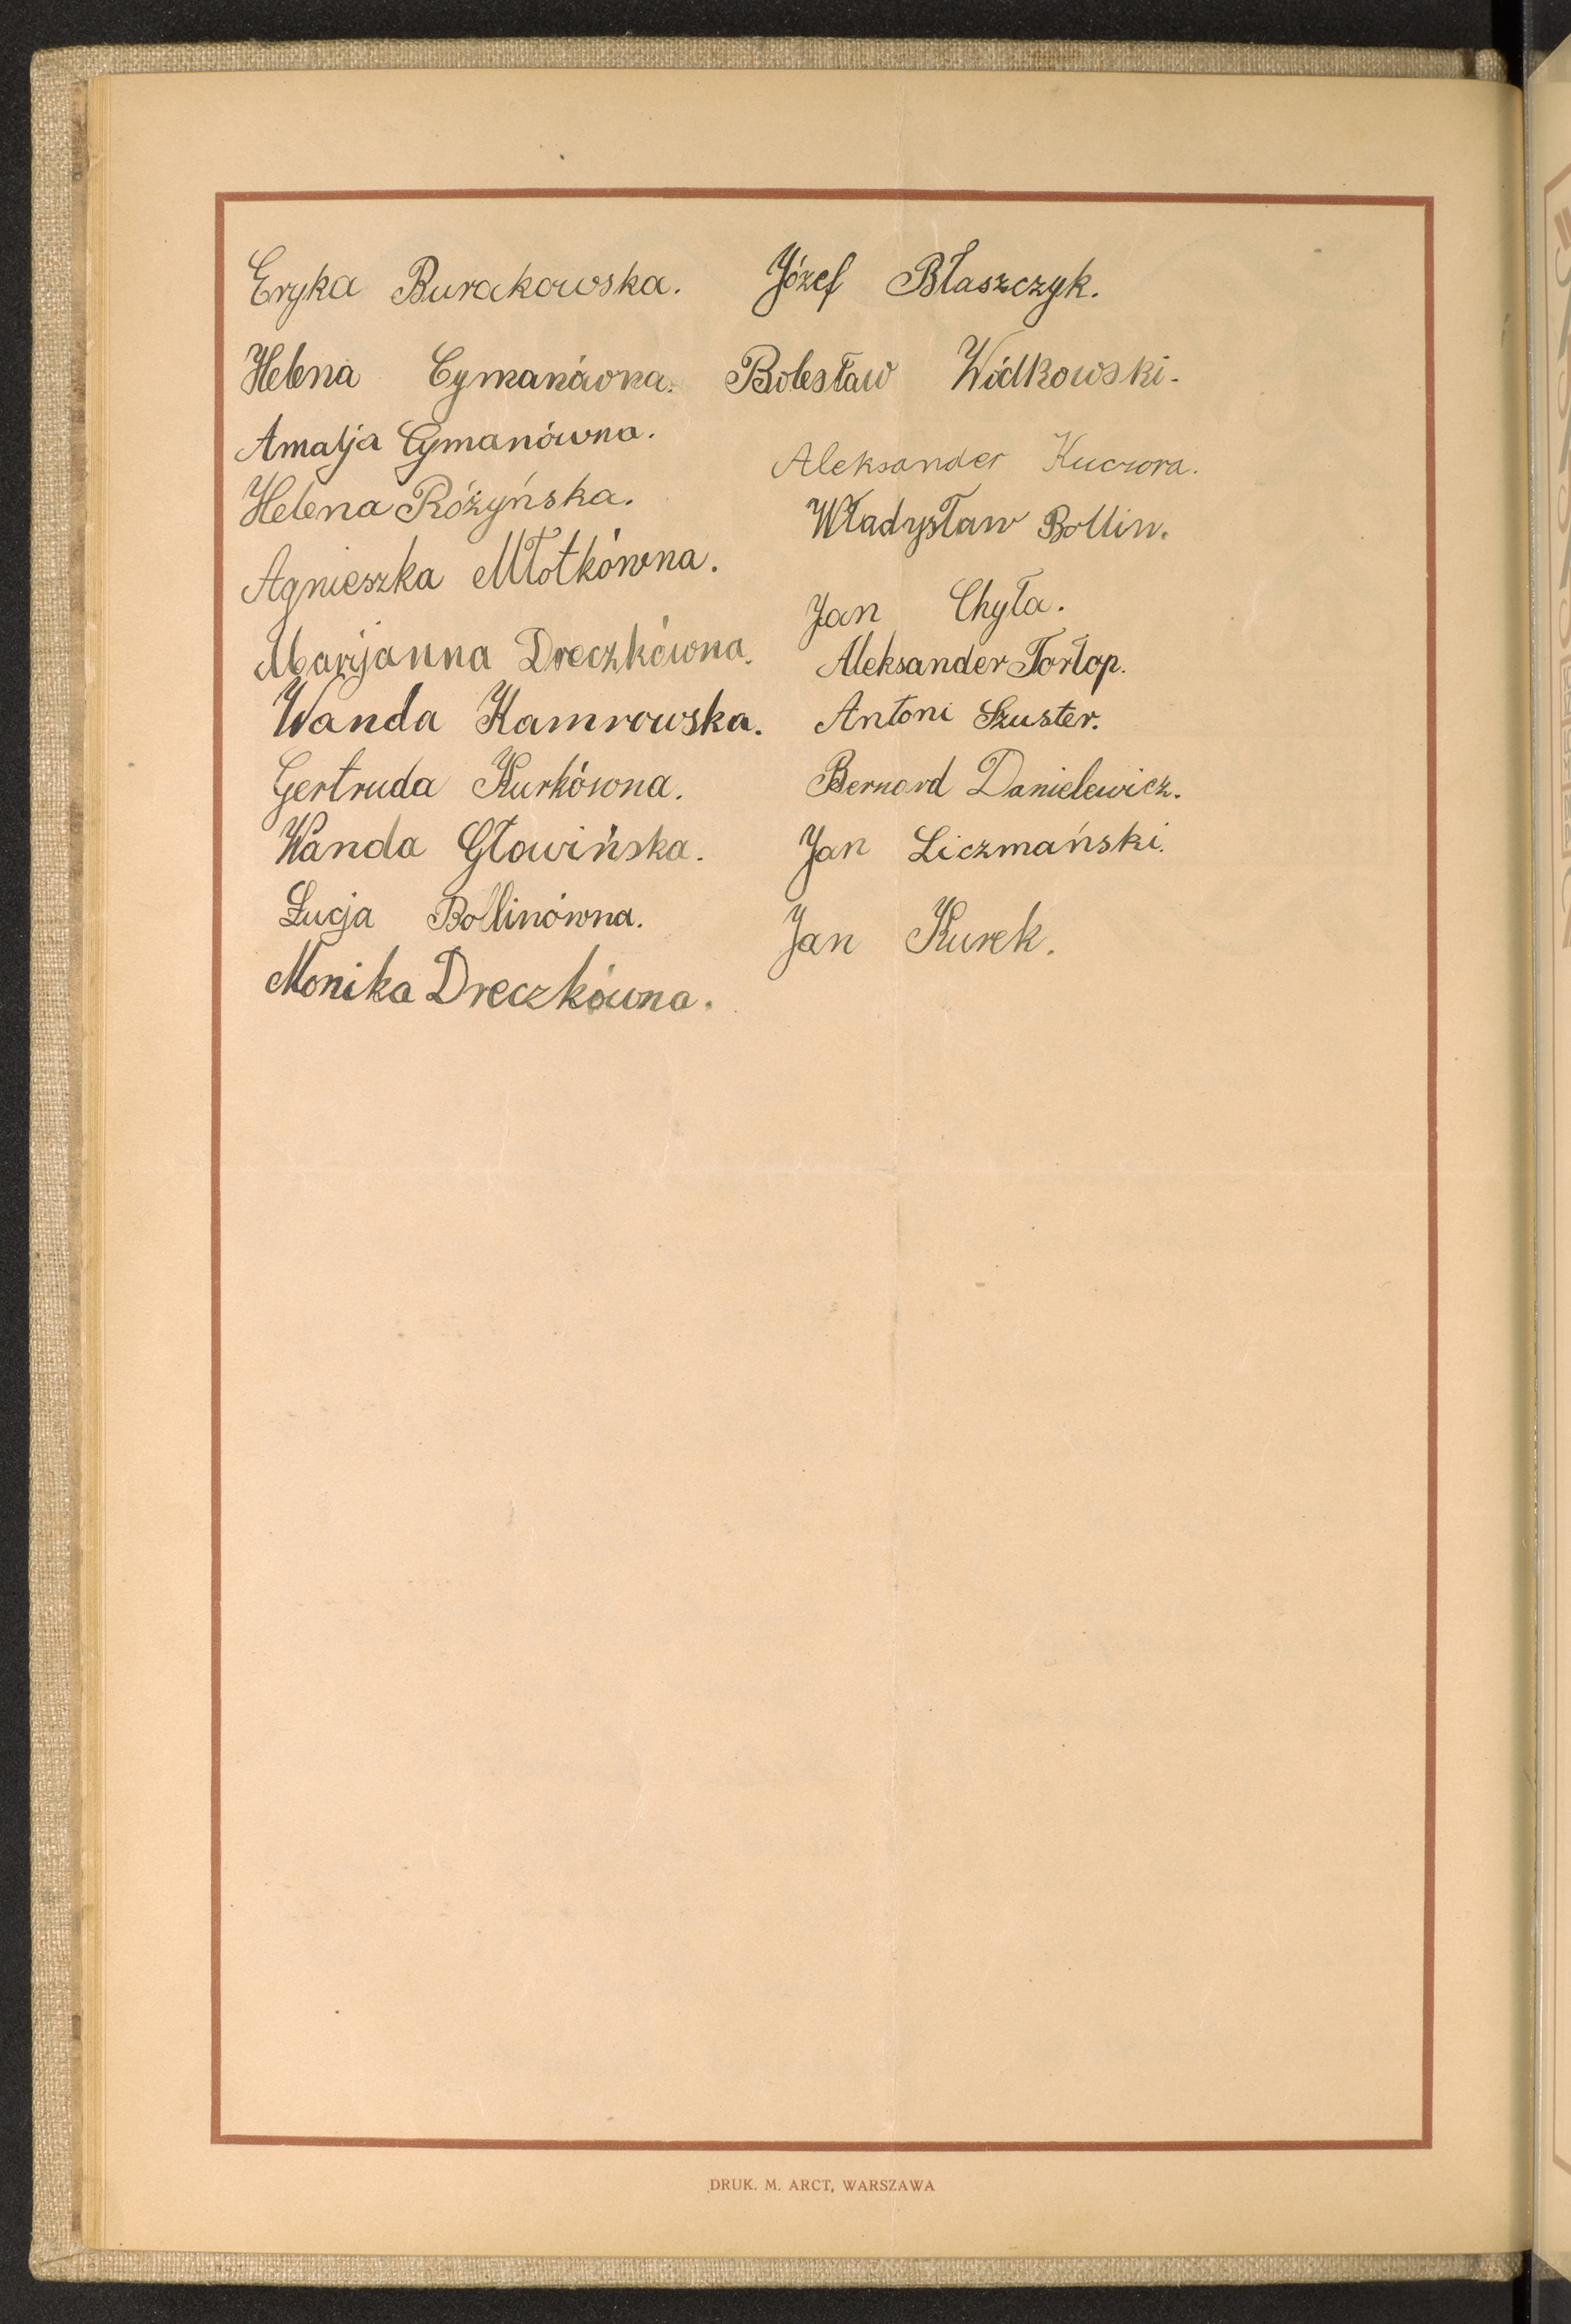 Eryka Burakowska.
Helena Cymanówna.
Amalja Cymanówna.
Helena Różyńska.
Agnieszka Młotkówna.
Marjanna Dreczkówna.
Wanda Kamrowska.
Gertruda Kurkówna.
Wanda Głowińska.
Łucja Bollinówna.
Monika Dreczkówna.
Józef Błaszczyk.
Bolesław Wódkowski.
Aleksander Kuczora.
Władysław Bollin.
Jan Chyła.
Aleksander Tortop.
Antoni Szuster.
Bernard Danielewicz.
Jan Liczmański.
Jan Kurek.
DRUK. M. ARCT, WARSZAWA